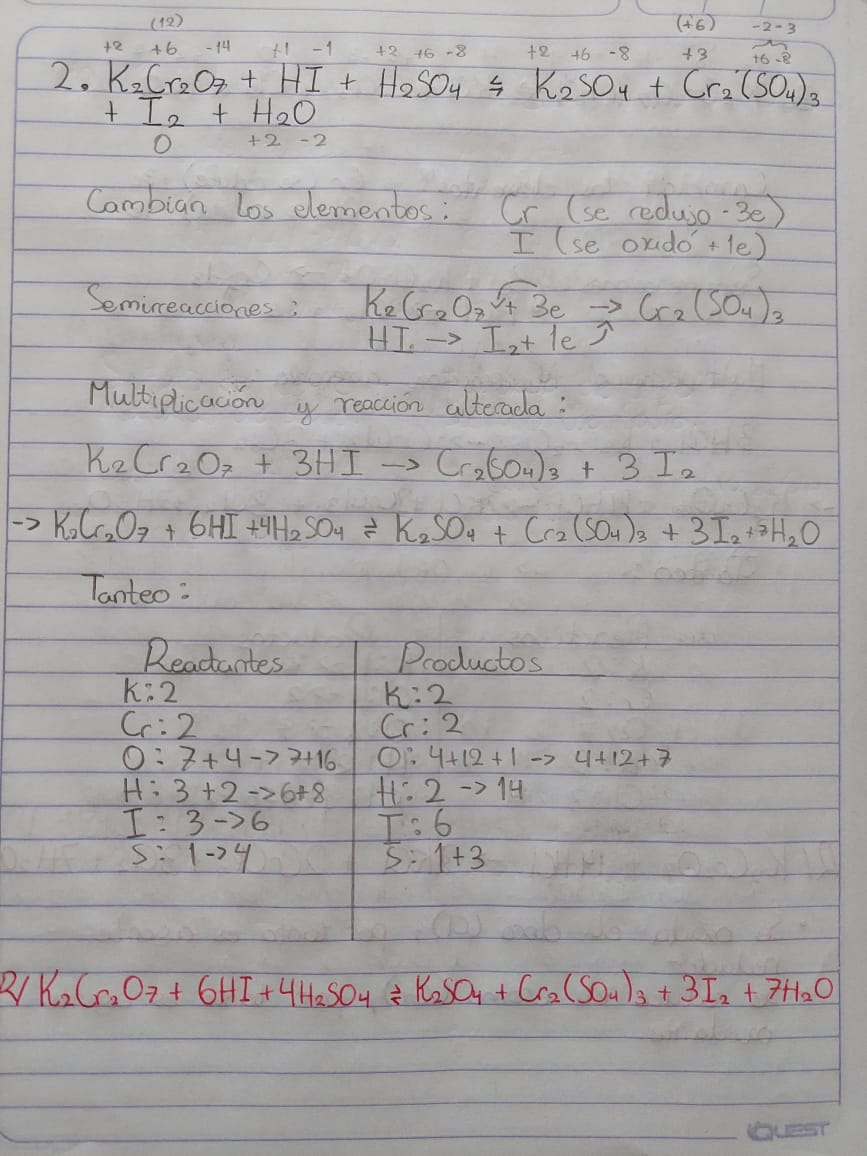 (12) (+6) -2-3
+2 +6 -14 +1 -1 +2 +6 -8 +2 +6 -8 +3 +6 -8
2. K₂Cr₂O₇ + HI + H₂SO₄ ⇆ K₂SO₄ + Cr₂(SO₄)₃
+ I₂ + H₂O
0 +2 -2
Cambian los elementos: Cr (se redujo -3e)
I (se oxidó +1e)
Semirreacciones: K₂Cr₂O₇ + 3e → Cr₂(SO₄)₃
HI → I₂ + 1e
Multiplicación y reacción alterada:
K₂Cr₂O₇ + 3HI → Cr₂(SO₄)₃ + 3 I₂
→ K₂Cr₂O₇ + 6HI + 4H₂SO₄ ⇄ K₂SO₄ + Cr₂(SO₄)₃ + 3I₂ + 7H₂O
Tanteo:
Reactantes Productos
K: 2 K: 2
Cr: 2 Cr: 2
O: 7+4 → 7+16 O: 4+12+1 → 4+12+7
H: 3+2 → 6+8 H: 2 → 14
I: 3 → 6 I: 6
S: 1 → 4 S: 1+3
R/ K₂Cr₂O₇ + 6HI + 4H₂SO₄ ⇄ K₂SO₄ + Cr₂(SO₄)₃ + 3I₂ + 7H₂O
QUEST